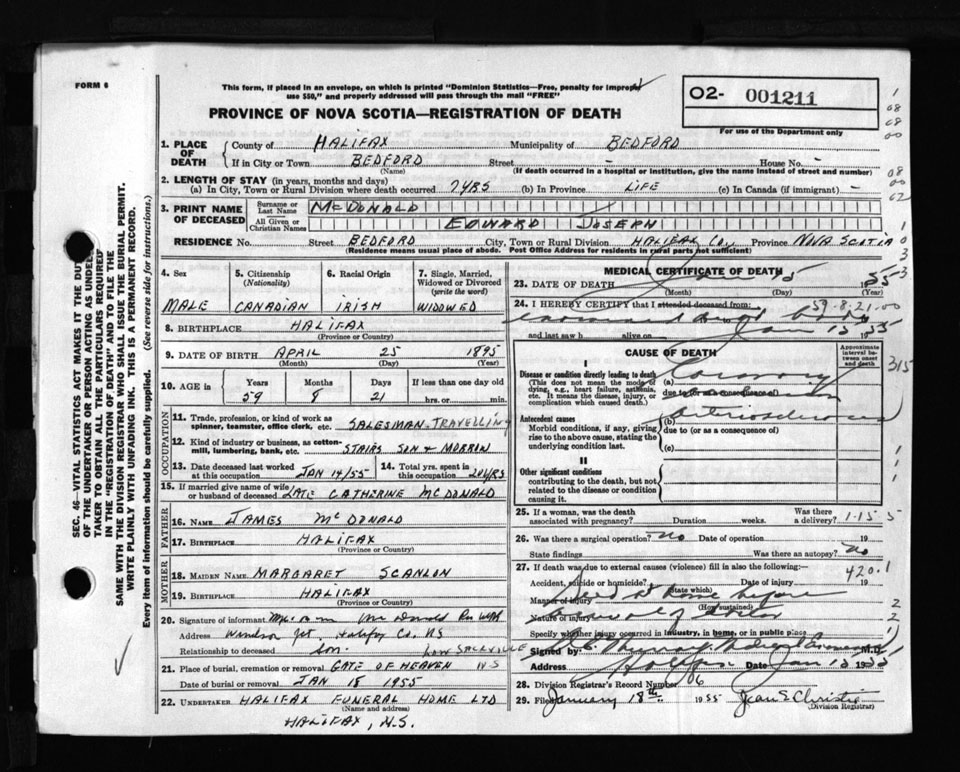 FORM 6
This form, if placed in an envelope, on which is printed "Dominion Statistics—Free, penalty for improper
use $50," and properly addressed will pass through the mail "FREE"
PROVINCE OF NOVA SCOTIA—REGISTRATION OF DEATH
O2- 001211
For use of the Department only
1. PLACE OF DEATH
County of HALIFAX Municipality of BEDFORD
If in City or Town BEDFORD Street - House No. -
(Name) (If death occurred in a hospital or institution, give the name instead of street and number)
2. LENGTH OF STAY (in years, months and days)
(a) In City, Town or Rural Division where death occurred 7 YRS (b) In Province LIFE (c) In Canada (if immigrant) -
3. PRINT NAME OF DECEASED
Surname or Last Name McDONALD
All Given or Christian Names EDWARD JOSEPH
RESIDENCE No. Street BEDFORD City, Town or Rural Division HALIFAX Co. Province NOVA SCOTIA
(Residence means usual place of abode. Post Office Address for residents in rural parts not sufficient)
4. Sex
MALE
5. Citizenship
(Nationality)
CANADIAN
6. Racial Origin
IRISH
7. Single, Married,
Widowed or Divorced
(write the word)
WIDOWED
8. BIRTHPLACE HALIFAX
(Province or Country)
9. DATE OF BIRTH APRIL 25 1895
(Month) (Day) (Year)
10. AGE in Years Months Days If less than one day old
59 8 21 hrs. or min.
OCCUPATION
11. Trade, profession, or kind of work as
spinner, teamster, office clerk, etc. SALESMAN-TRAVELLING
12. Kind of industry or business, as cotton-
mill, lumbering, bank, etc. STAIRS SON & MORROW
13. Date deceased last worked
at this occupation JAN 14/55
14. Total yrs. spent in
this occupation 20 YRS
15. If married give name of wife
or husband of deceased LATE CATHERINE McDONALD
FATHER
16. NAME JAMES McDONALD
17. BIRTHPLACE HALIFAX
(Province or Country)
MOTHER
18. MAIDEN NAME MARGARET SCANLON
19. BIRTHPLACE HALIFAX
(Province or Country)
20. Signature of informant
Address Windsor Jct. Halifax Co. NS
Relationship to deceased Son.
LOW SACKVILLE
21. Place of burial, cremation or removal GATE OF HEAVEN NS
Date of burial or removal JAN 18 1955
22. UNDERTAKER HALIFAX FUNERAL HOME LTD
(Name and address)
HALIFAX, N.S.
MEDICAL CERTIFICATE OF DEATH
23. DATE OF DEATH 55
(Month) (Day) (Year)
24. I HEREBY CERTIFY that I attended deceased from:
59-8-21.00
and last saw h alive on Jan 15 1955
CAUSE OF DEATH
Approximate interval between onset and death
I
Disease or condition directly leading to death
(This does not mean the mode of
dying, e.g., heart failure, asthenia,
etc. It means the disease, injury, or
complication which caused death.)
(a) Coronary
due to (or as a consequence of)
Antecedent causes
Morbid conditions, if any, giving
rise to the above cause, stating the
underlying condition last.
(b) Arteriosclerosis
due to (or as a consequence of)
(c)
II
Other significant conditions
contributing to the death, but not
related to the disease or condition
causing it.
25. If a woman, was the death
associated with pregnancy? Duration weeks. Was there
a delivery? 1-15 5
26. Was there a surgical operation? No Date of operation 19
State findings Was there an autopsy? No
27. If death was due to external causes (violence) fill in also the following:—
420.1
Accident, suicide or homicide? Date of injury 19
(State which)
Manner of injury
(How sustained)
Nature of injury
Specify whether injury occurred in industry, in home, or in public place
Signed by M.D.
Address Halifax Date Jan 1955
28. Division Registrar's Record Number 06
29. Filed January 18th 1955 Jean S. Christie
(Division Registrar)
SEC. 46—VITAL STATISTICS ACT MAKES IT THE DUTY
OF THE UNDERTAKER OR PERSON ACTING AS UNDER-
TAKER TO OBTAIN ALL THE PARTICULARS REQUIRED
IN THE "REGISTRATION OF DEATH" AND TO FILE THE
SAME WITH THE DIVISION REGISTRAR WHO SHALL ISSUE THE BURIAL PERMIT.
WRITE PLAINLY WITH UNFADING INK. THIS IS A PERMANENT RECORD.
Every item of information should be carefully supplied. (See reverse side for instructions.)
315